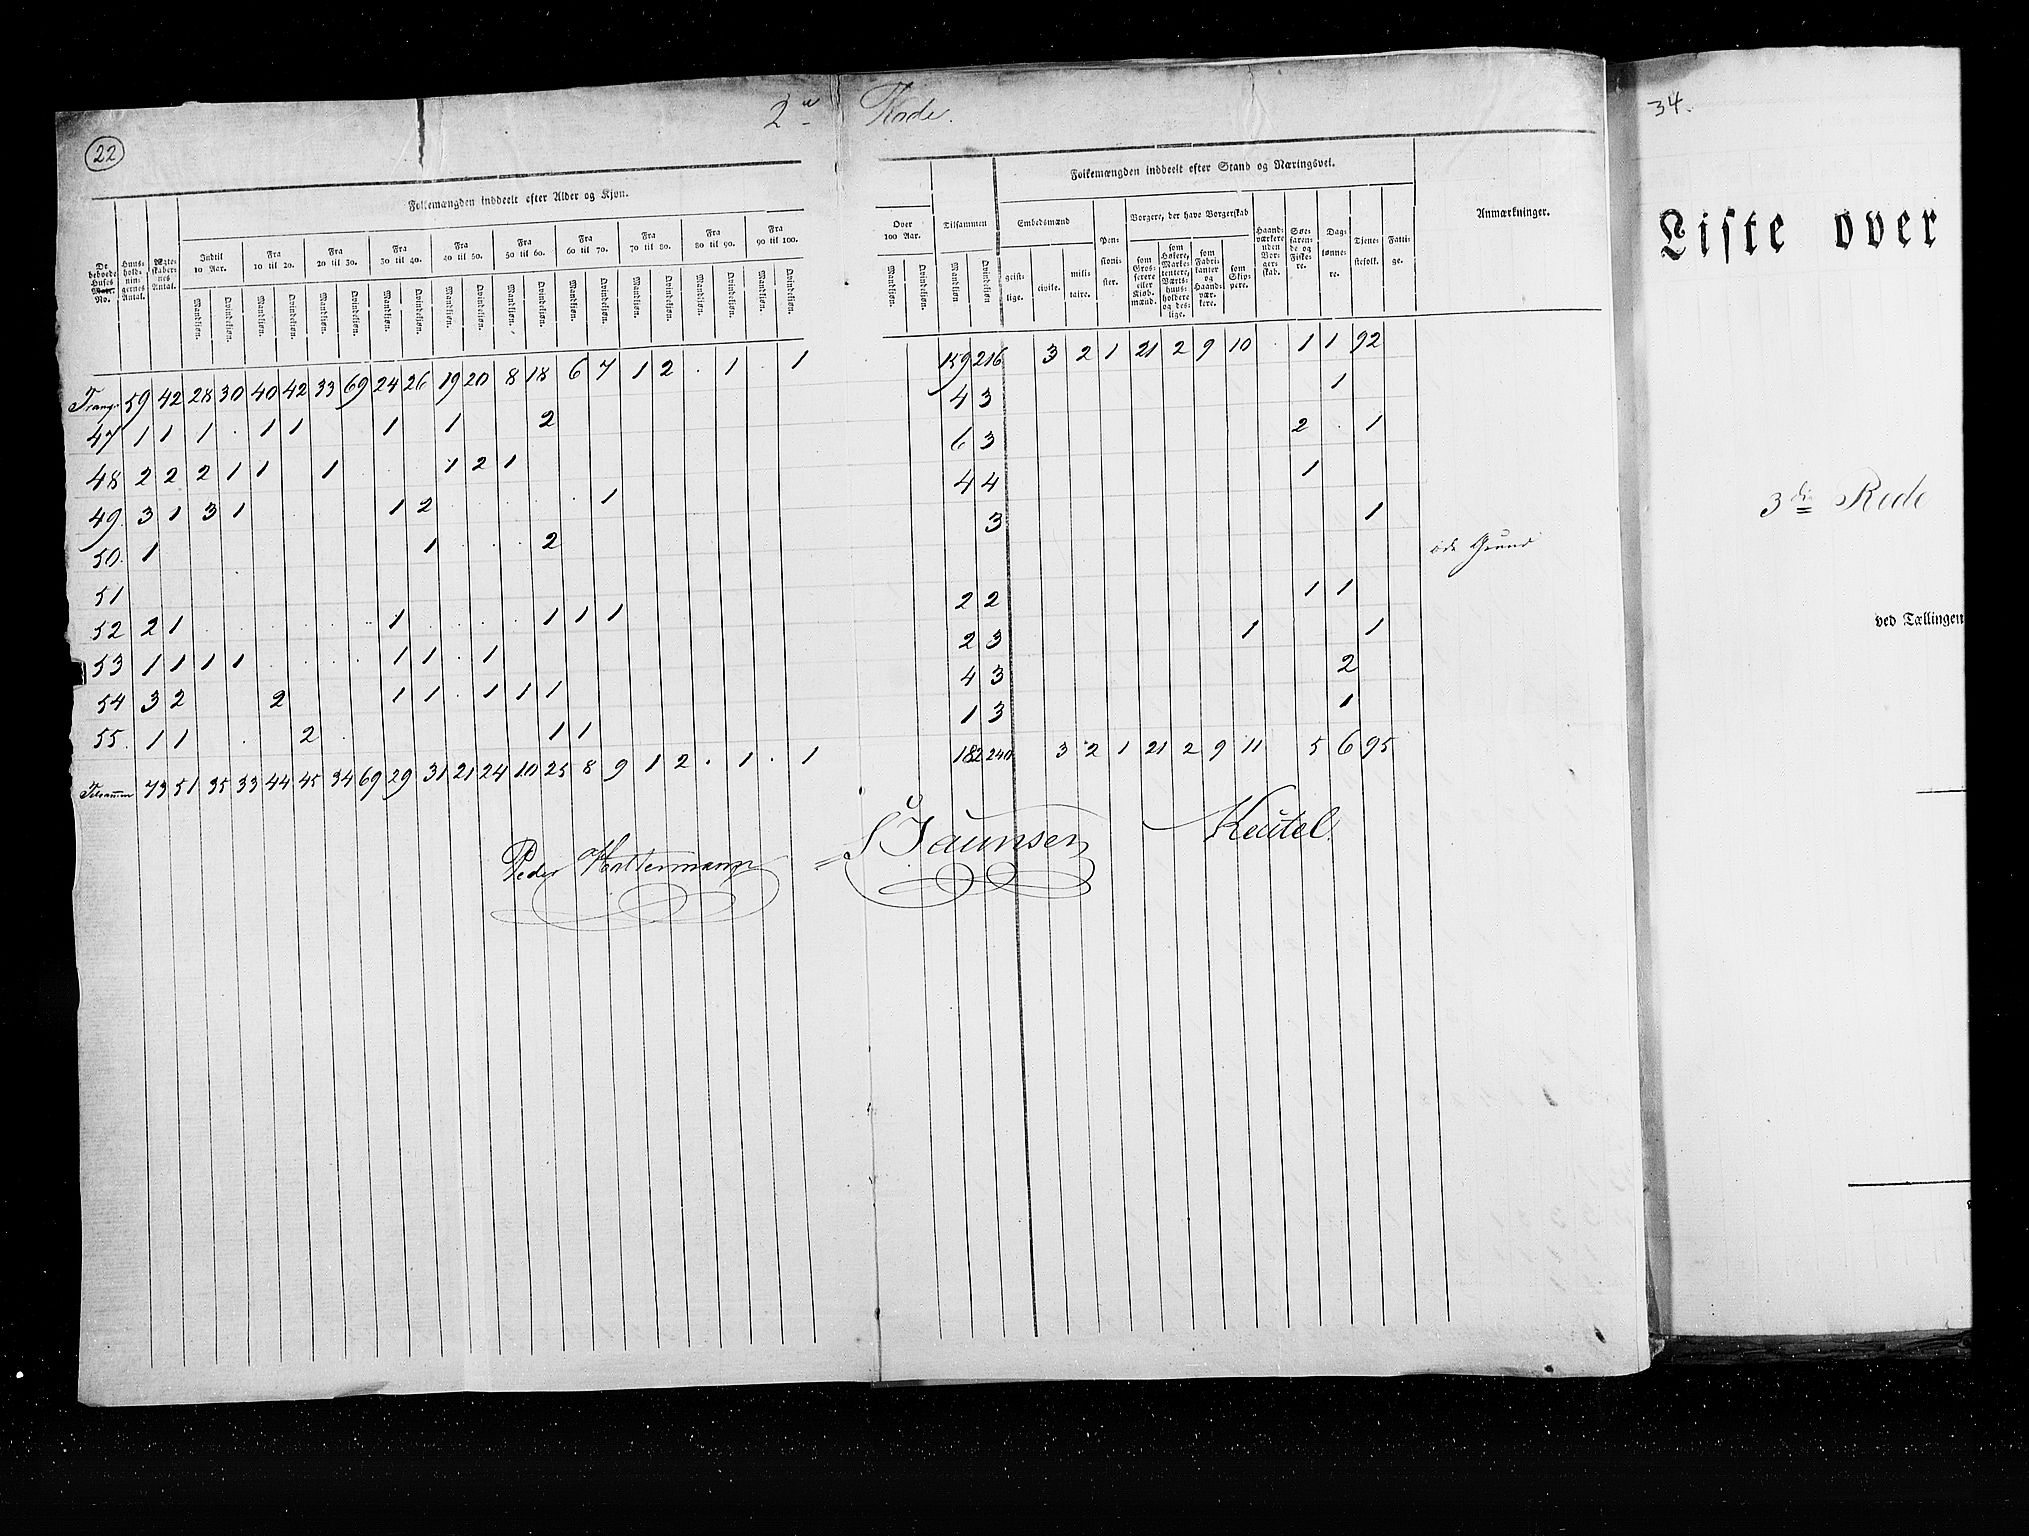 22
2den Rode.
34.
Folkemængden inddeelt efter Alder og Kjøn.
Folkemængden inddeelt efter Stand og Næringsvei.
De beboede Huses Matr. No. | Huusholdningernes Antal. | Ægteskabernes Antal. | Indtil 10 Aar. | Fra 10 til 20. | Fra 20 til 30. | Fra 30 til 40. | Fra 40 til 50. | Fra 50 til 60. | Fra 60 til 70. | Fra 70 til 80. | Fra 80 til 90. | Fra 90 til 100. | Over 100 Aar. | Tilsammen | Embedsmænd | Pensionister. | Borgere, der have Borgerskab | Haandværkere uden Borgerskab. | Søefarende og Fiskere. | Daglønnere. | Tjenestefolk. | Fattige. | Anmærkninger.
Mandkjøn. Qvindekjøn. Mandkjøn. Qvindekjøn. Mandkjøn. Qvindekjøn. Mandkjøn. Qvindekjøn. Mandkjøn. Qvindekjøn. Mandkjøn. Qvindekjøn. Mandkjøn. Qvindekjøn. Mandkjøn. Qvindekjøn. Mandkjøn. Qvindekjøn. Mandkjøn. Qvindekjøn. Mandkjøn. Qvindekjøn. Mandkjøn Qvindekjøn | geistlige. | civile. | militaire. | som Grosserere eller Kjøbmænd. | som Høkere, Marketentere, Værtshuusholdere og deslige. | som Fabrikanter og Haandværkere. | som Skippere.
Transp. 59 42 28 30 40 42 33 69 24 26 19 20 8 18 6 7 1 2 . 1 . 1 159 216 3 2 1 21 2 9 10 . 1 1 92
47 1 1 1 . 1 1 1 1 2 4 3 1
48 2 2 2 1 1 1 1 2 1 6 3 2 . 1
49. 3 1 3 1 1 2 1 4 4 1
50. 1 1 2 3 1
51 øde Grund
52 2 1 1 1 1 1 2 2 1 1
53 1 1 1 1 1 1 1 2 3 1 1
54 3 2 2 1 1 1 1 1 4 3 2
55. 1 1 2 1 1 1 3 1
Tilsammen 73 51 35 33 44 45 34 69 29 31 21 24 10 25 8 9 1 2 . 1 . 1 182 240 3 2 1 21 2 9 11 5 6 95
Peder Holtermann
S Jaunsen
Keutel.
Liste over
3die Rode
ved Tællingen